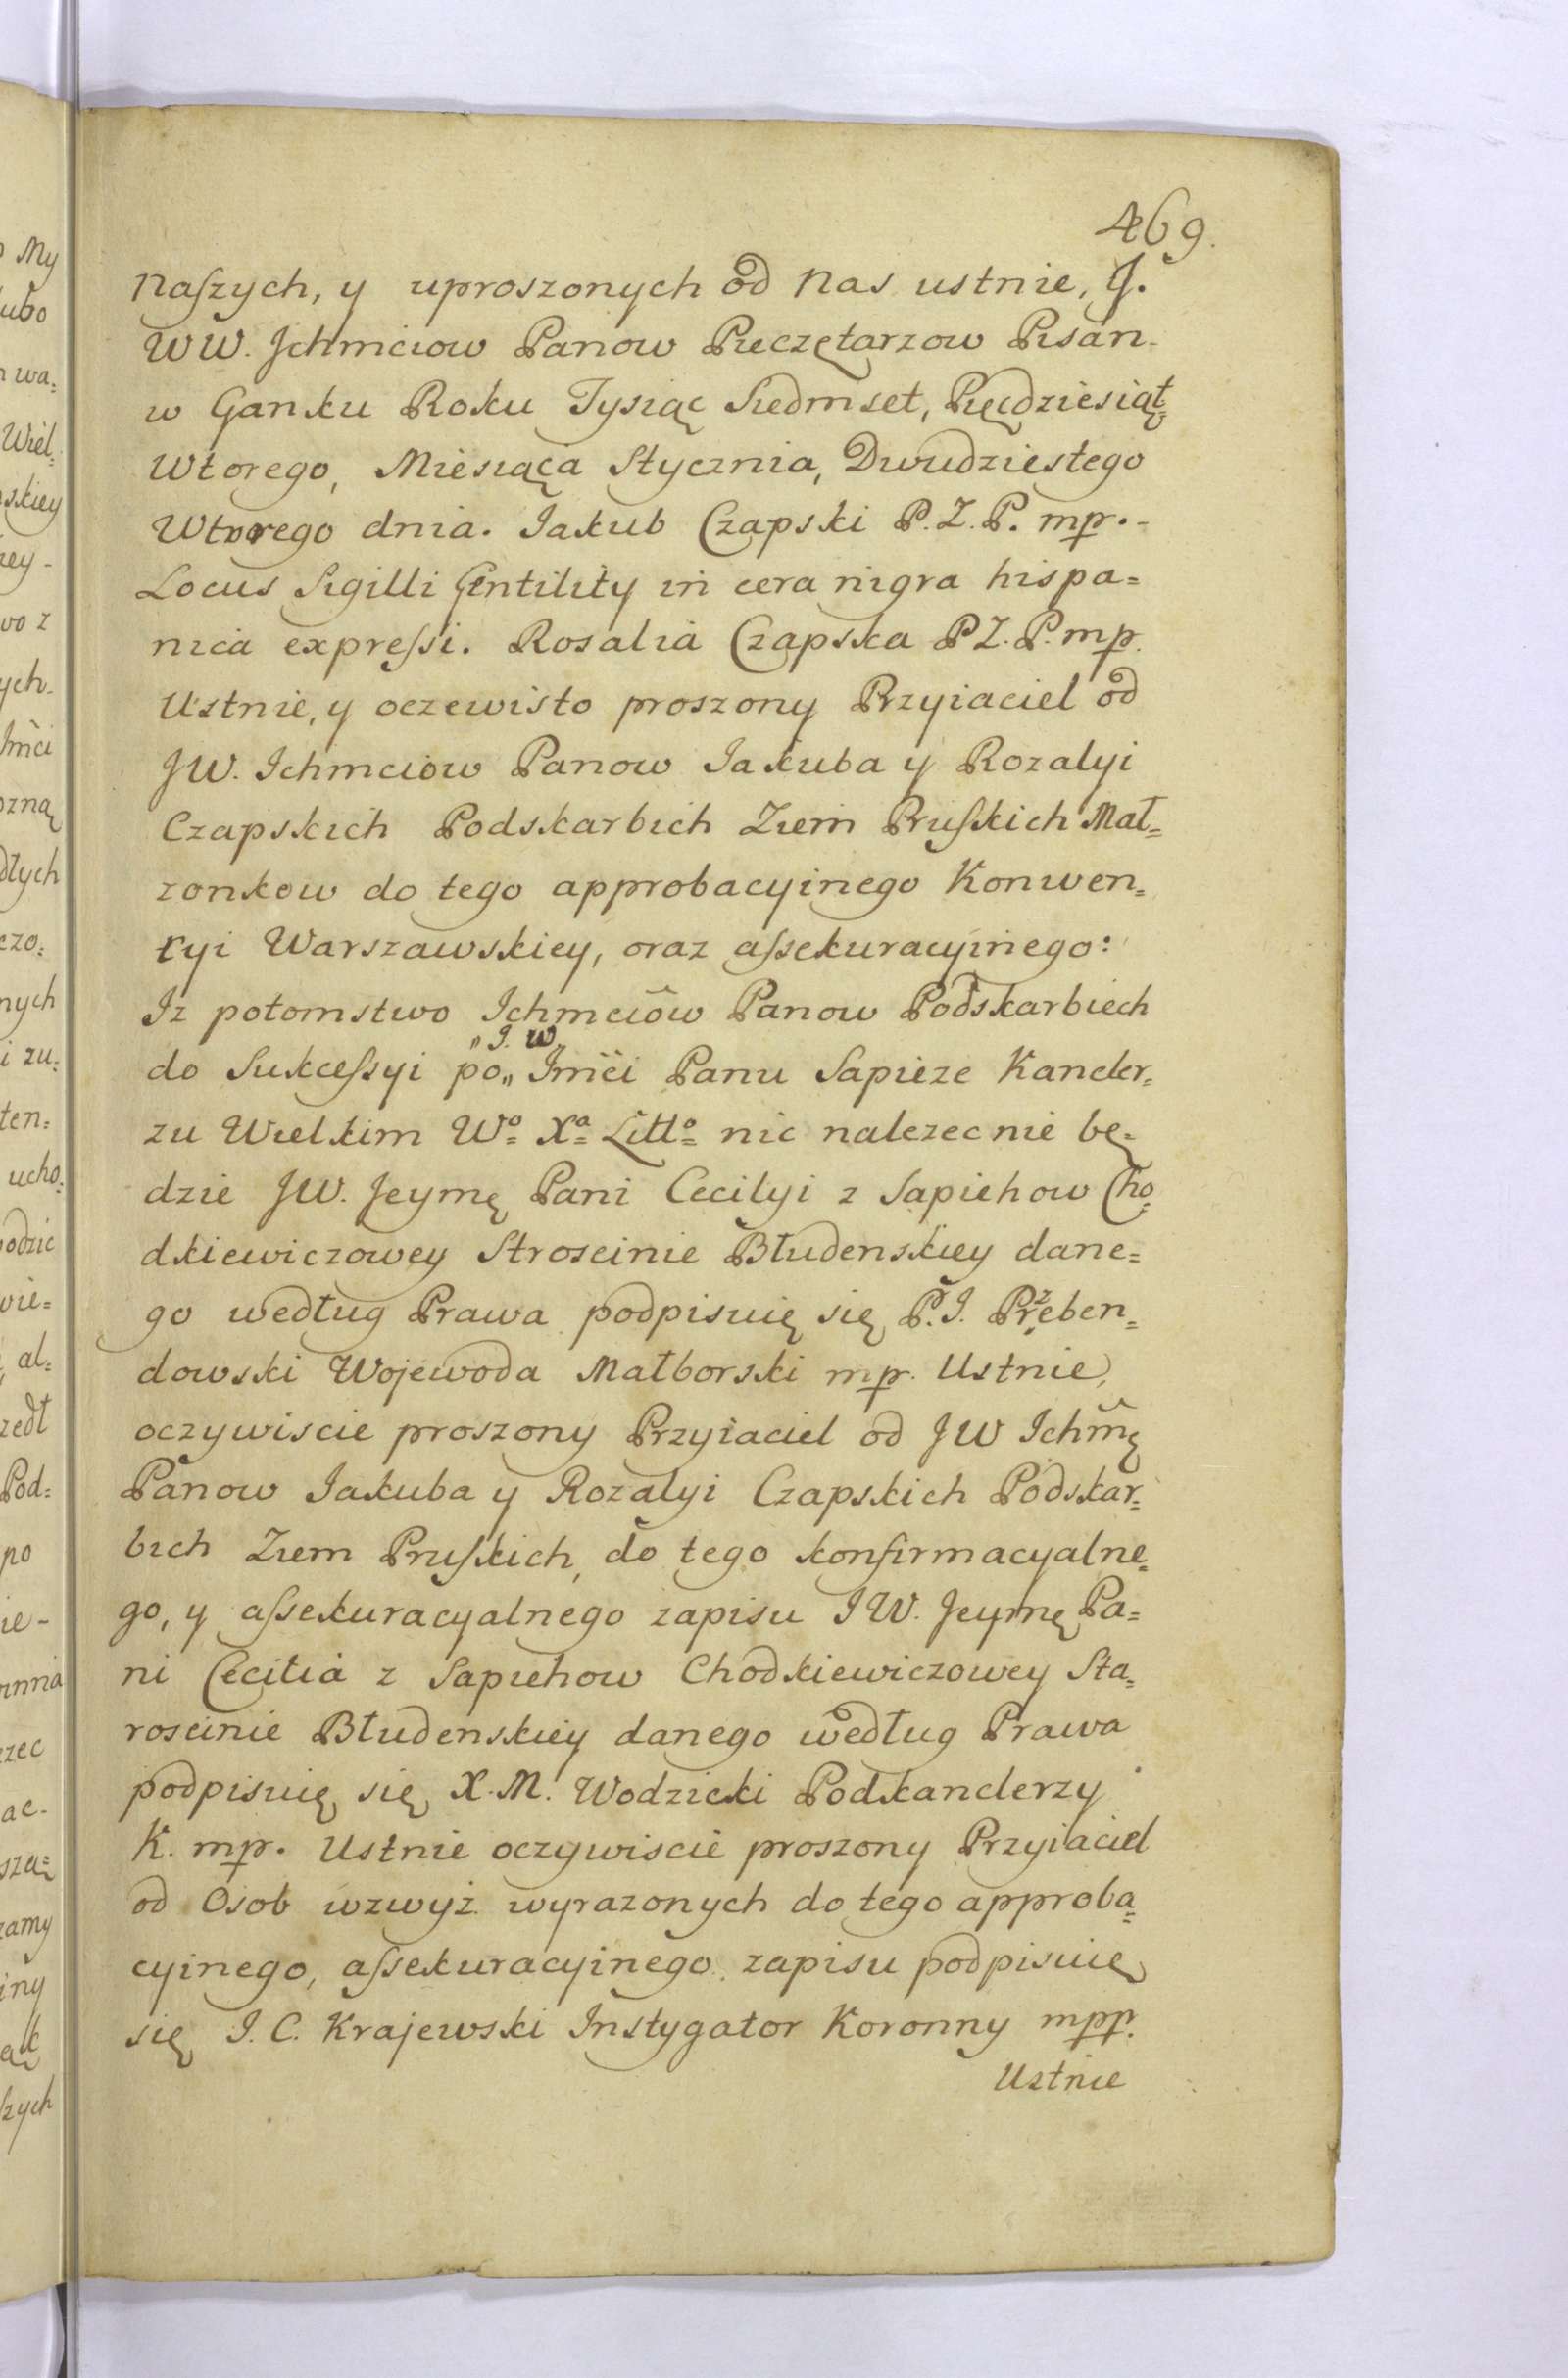 469.
naszych, y uproszonych od nas ustnie, J.
WW. Jchmciow Panow Pieczętarzow Pisan-
w Ganku Roku Tysiąc Siedmset, Pięcdziesiąt
Wtorego, Miesiąca Stycznia, Dwudziestego
Wtorego dnia. Iakub Czapski P. Z. P. mp.-
Locus Sigilli Gentility in cera nigra hispa=
nica expreſsi. Rosalia Czapska P Z. P. mp.
Ustnie, y oczewisto proszony Przyiaciel od
JW. Ichmciow Panow Iakuba y Rozalyi
Czapskich Podskarbich Ziem Pruſkich Mał=
zonkow do tego approbacyinego Konwen=
cyi Warszawskiey, oraz aſsekuracyinego:
Iz potomstwo Ichmciow Panow Podskarbiech
do Sukceſsyi po „J. W„ Imci Panu Sapieze Kancler=
zu Wielkim Wº Xª Littº nic nalezec nie bę=
dzie JW. Jeymę Pani Cecilyi z Sapiehow Cho=
dkiewiczowey Stroscinie Błudenskiey dane=
go według Prawa podpisuię się P. J. Przeben=
dowski Wojewoda Małborski mp. Ustnie,
oczywiscie proszony Przyiaciel od JW Ichmę
Panow Iakuba y Rozalyi Czapskich Podskar=
bich Ziem Pruſkich, do tego konfirmacyalne=
go, y aſsekuracyalnego zapisu JW. Jeymę Pa=
ni Cecilia z Sapiehow Chodkiewiczowey Sta=
roscinie Błudenskiey danego według Prawa
podpisuię się X. M. Wodzicki Podkanclerzy
K. mp. Ustnie oczywiscie proszony Przyiaciel
od Osob wzwyż wyrazonych do tego approba=
cyinego, aſsekuracyinego zapisu podpisuię
się J. C. Krajewski Instygator Koronny mpp.
Ustnie